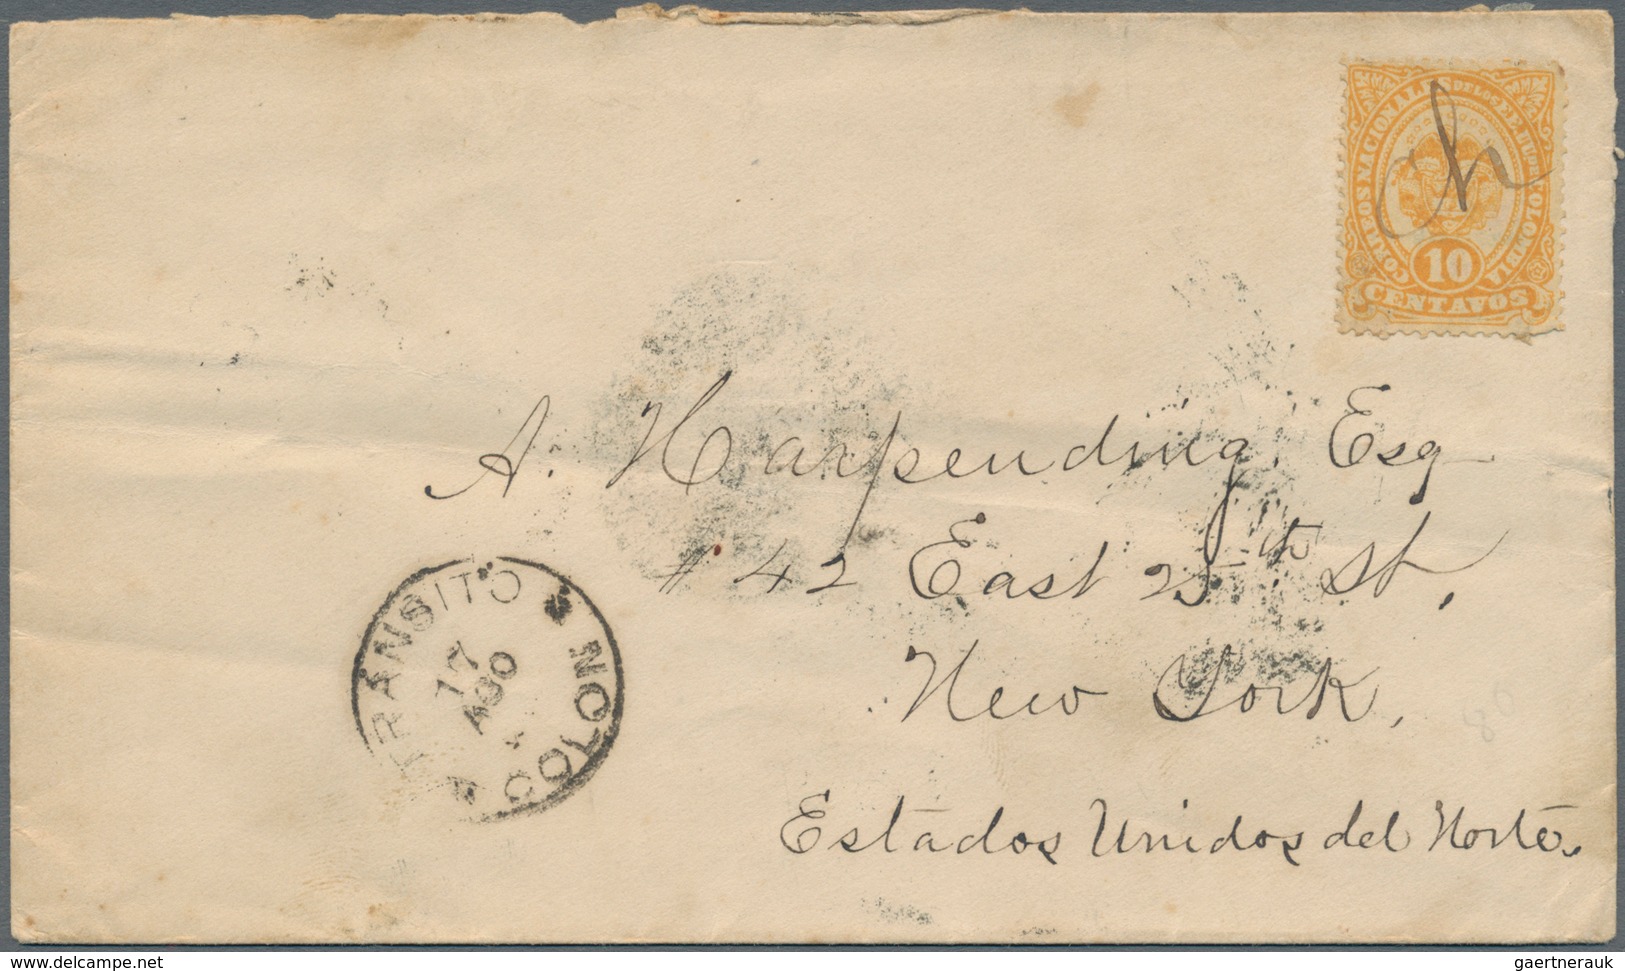 CORREOS NACIONALES DE LOS EE. UU. DE COLOMBIA
10
CENTAVOS
A. Harpending, Esq
# 42 East 25th St,
New York,
Estados Unidos del Norte.
TRANSITO
17
AGO
COLON
80
www.delcampe.net
gaertnerauk